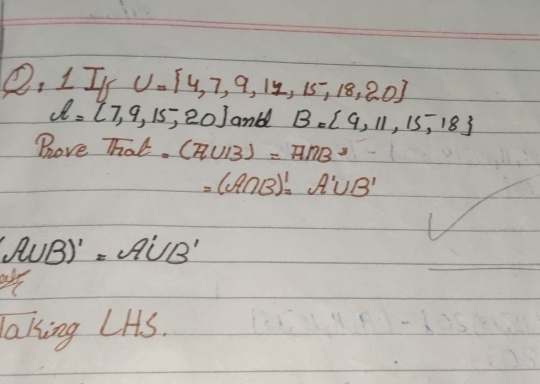 Q. 1 If U = {4, 7, 9, 12, 15, 18, 20}
A = {7, 9, 15, 20} and B = {9, 11, 15, 18}
Prove That = (AUB) = A∩B'
= (A∩B)' = A'UB'
(AUB)' = A'UB'
Taking LHS.